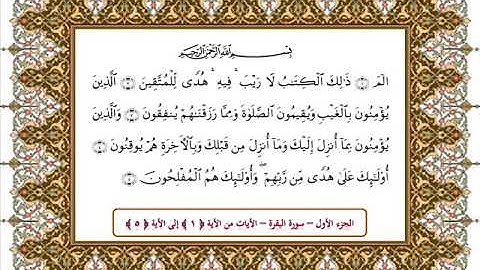 بِسْمِ اللَّهِ الرَّحْمَٰنِ الرَّحِيمِ
الٓمٓ ﴿١﴾ ذَٰلِكَ الْكِتَٰبُ لَا رَيْبَ ۛ فِيهِ ۛ هُدًى لِّلْمُتَّقِينَ ﴿٢﴾ الَّذِينَ
يُؤْمِنُونَ بِالْغَيْبِ وَيُقِيمُونَ الصَّلَوٰةَ وَمِمَّا رَزَقْنَٰهُمْ يُنفِقُونَ ﴿٣﴾ وَالَّذِينَ
يُؤْمِنُونَ بِمَا أُنزِلَ إِلَيْكَ وَمَا أُنزِلَ مِن قَبْلِكَ وَبِالْآخِرَةِ هُمْ يُوقِنُونَ ﴿٤﴾
أُولَٰئِكَ عَلَىٰ هُدًى مِّن رَّبِّهِمْ ۖ وَأُولَٰئِكَ هُمُ الْمُفْلِحُونَ ﴿٥﴾
الجزء الأول – سورة البقرة – الآيات من الآية ﴿ ١ ﴾ إلى الآية ﴿ ٥ ﴾